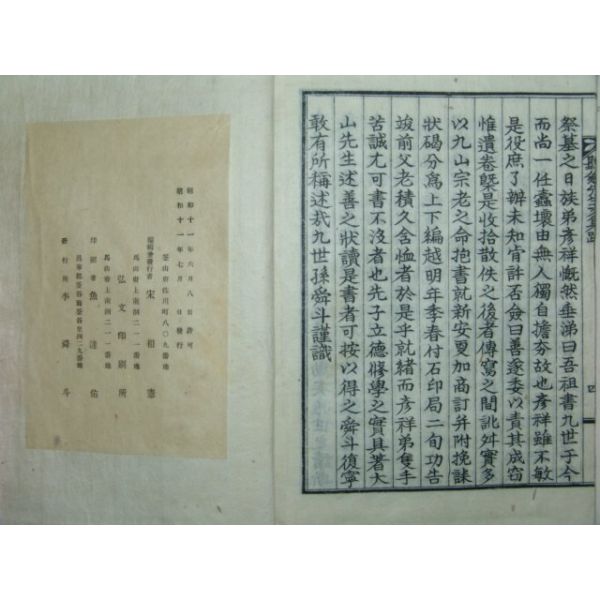 祭墓之日族弟彦祥慨然垂涕曰吾祖書九世于今
而尚一任蠹壞由無人獨自擔夯故也彦祥雖不敏
是役庶了辦未知肯許否僉曰善遂委以責其成窃
惟遺卷槩是收拾散佚之後者傳寫之間訛舛實多
以九山宗老之命抱書就新安更加商訂并附挽誄
狀碣分爲上下編越明年季春付石印局二旬功告
竣前父老積久含恤者於是乎就緒而彦祥弟隻手
苦誠尤可書不沒者也先子立德脩學之實具著大
山先生述善之狀讀是書者可按以得之舜斗復寧
敢有所稱述㢤九世孫舜斗謹識
四
昭和十一年六月八日許可
昭和十一年七月 日發行
釜山府佐川町八〇九番地
編輯兼發行者 宋相憲
馬山府上南洞二一一番地
弘文印刷所
馬山府上南洞二一一番地
印刷者 魚達佑
發行所 李舜斗